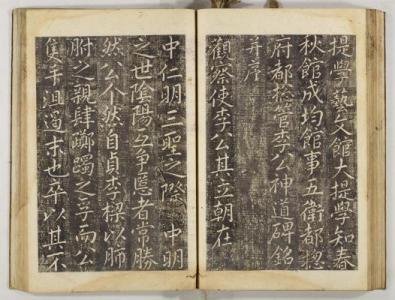 提學藝文館大提學知春
秋館成均館事五衛都摠
府都摠管李公神道碑銘
并序
觀察使李公其立朝在
中仁明三聖之際 中明
之世陰陽互爭慝者常勝
然公介然自貞李樑以肺
胕之親肆躑躅之孚而公
隻手沮遏末也卒以其不